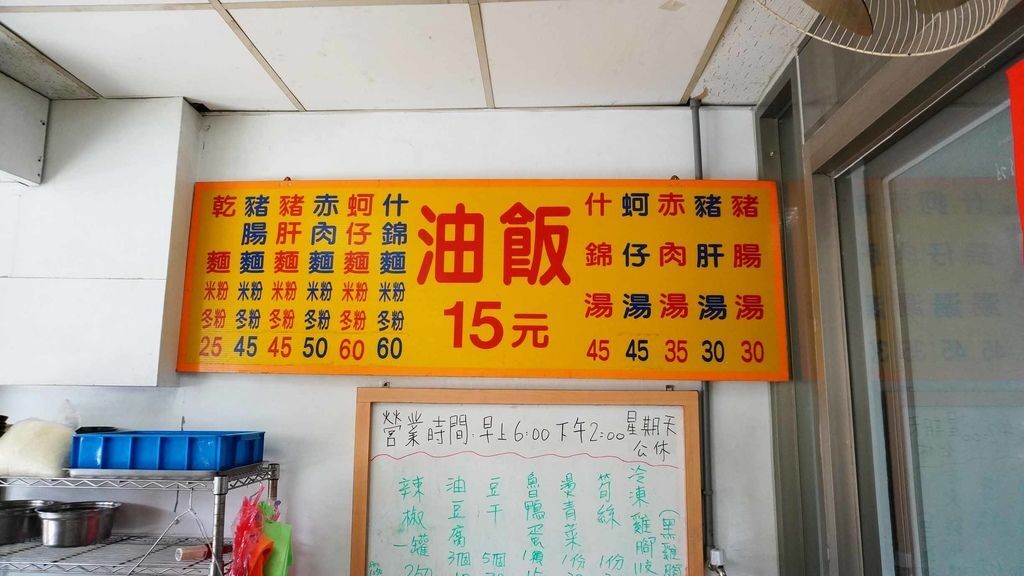 乾麵 米粉 冬粉 25
豬腸麵 米粉 冬粉 45
豬肝麵 米粉 冬粉 45
赤肉麵 米粉 冬粉 50
蚵仔麵 米粉 冬粉 60
什錦麵 米粉 冬粉 60
油飯
15元
什錦湯 45
蚵仔湯 45
赤肉湯 35
豬肝湯 30
豬腸湯 30
營業時間:早上6:00下午2:00星期天
公休
辣椒一罐250
油豆腐3個10
豆干5個
魯鴨蛋1顆15
燙青菜1份
筍絲1份
冷凍雞胸
(黑雞